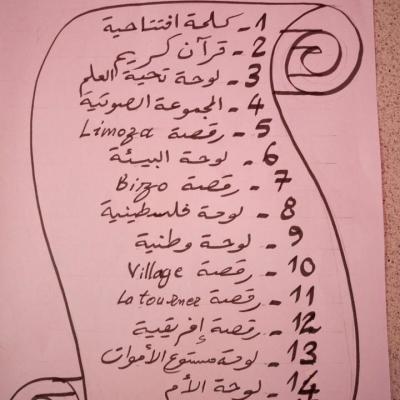 1 - كلمة افتتاحية
2 - قرآن كريم
3 - لوحة تحية العلم
4 - المجموعة الصوتية
5 - رقصة Limoza
6 - لوحة البيئة
7 - رقصة Bizzo
8 - لوحة فلسطينية
9 - لوحة وطنية
10 - رقصة Village
11 - رقصة La tournee
12 - رقصة إفريقية
13 - لوحة مستودع الأموات
14 - لوحة الأم